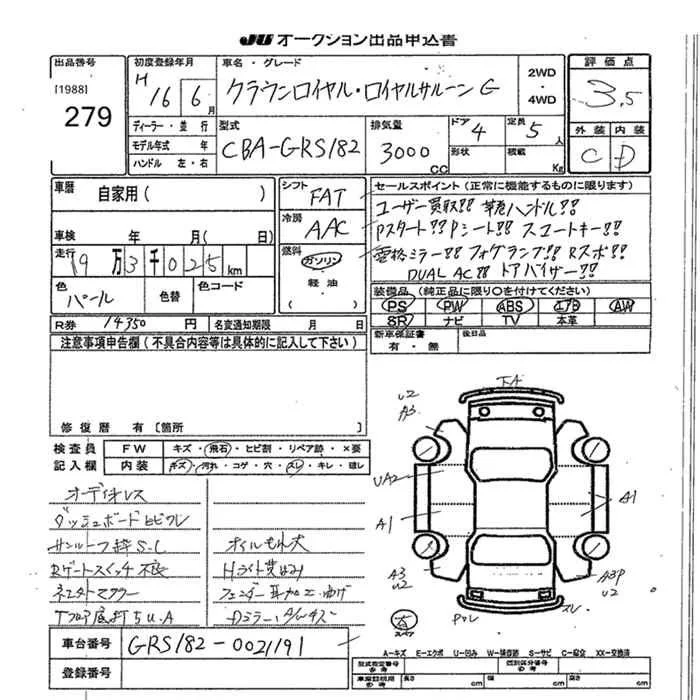 JU オークション出品申込書
出品番号
[1988]
279
初度登録年月
H 16 6月
車名・グレード
クラウンロイヤル・ロイヤルサルーン G
2WD
・
4WD
評価点
3.5
外装 内装
C D
ディーラー・並行
モデル年式 年
ハンドル 左・右
型式
CBA-GRS182
排気量
3000 CC
ドア 4
形状
定員 5人
積載 Kg
車歴 自家用( )
車検 年 月( 日)
走行 19万3千025km
色 パール
色替
色コード
シフト FAT
冷房 AAC
燃料
ガソリン
・
軽油
セールスポイント(正常に機能するものに限ります)
ユーザー買取!! 革巻ハンドル!!
Pスタート!! Pシート!! スマートキー!!
電格ミラー!! フォグランプ!! Rスポ!!
DUAL AC!! ドアバイザー!!
装備品(純正品に限り○を付けてください)
PS PW ABS エアB AW
SR ナビ TV 本革
R券 14350 円
名変通知期限 月 日
新車保証書
有・無
後日品
注意事項申告欄(不具合内容等は具体的に記入して下さい)
修復歴 有〔箇所 〕
検査員
記入欄
FW キズ・飛石・ヒビ割・リペア跡・×要
内装 キズ・汚れ・コゲ・穴・スレ・キレ・破レ
オーディオレス
ダッシュボードヒビワレ
サンルーフ枠S.C
Rゲートスイッチ不良
下廻底打ちU.A
オイルもれ大
Hライト黄ばみ
フェンダー耳加工・曲げ
下A
U2
A3
UA2
A1
A3
U2
A1
A3P
U2
スレ
スペア
車台番号 GRS182-0021191
登録番号
A-キズ E-エクボ U-凹み W-補修跡 S-サビ C-腐食 XX-交換済
型式指定番号
参考
類別区分番号
参考
車庫証明用
参考
長さ cm
幅 cm
高さ cm